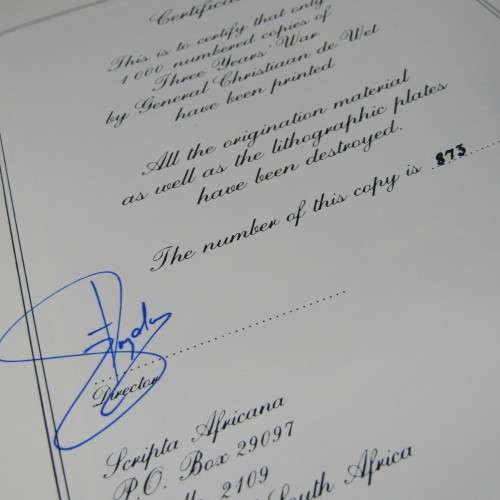 This is to certify that only
1 000 numbered copies of
Three Years' War
by General Christiaan de Wet
have been printed
All the origination material
as well as the lithographic plates
have been destroyed.
The number of this copy is 873
Director
Scripta Africana
P.O. Box 29097
2109
South Africa